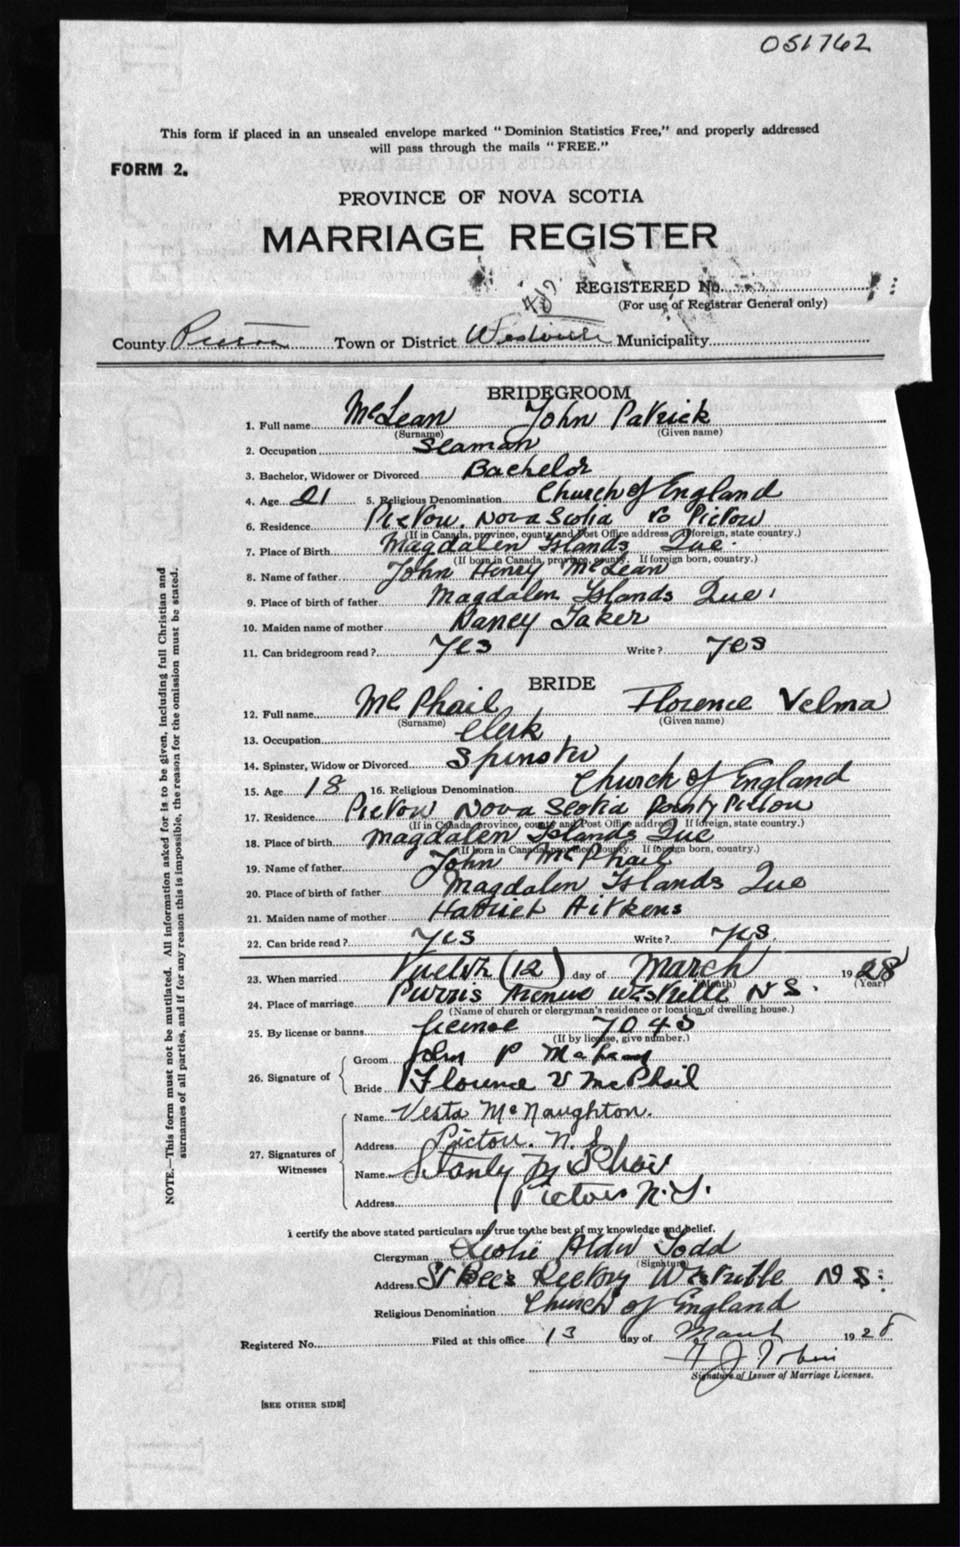 051762
This form if placed in an unsealed envelope marked "Dominion Statistics Free," and properly addressed
will pass through the mails "FREE."
FORM 2.
PROVINCE OF NOVA SCOTIA
MARRIAGE REGISTER
REGISTERED No.
(For use of Registrar General only)
County Pictou Town or District Westville Municipality
BRIDEGROOM
1. Full name McLean John Patrick
(Surname) (Given name)
2. Occupation Seaman
3. Bachelor, Widower or Divorced Bachelor
4. Age 21 5. Religious Denomination Church of England
6. Residence Pictou, Nova Scotia Co Pictou
(If in Canada, province, county and Post Office address. If foreign, state country.)
7. Place of Birth Magdalen Islands Que.
(If born in Canada, province, county. If foreign born, country.)
8. Name of father John Henry McLean
9. Place of birth of father Magdalen Islands Que.
10. Maiden name of mother Taker
11. Can bridegroom read? Yes Write? Yes
BRIDE
12. Full name McPhail Florence Velma
(Surname) (Given name)
13. Occupation Clerk
14. Spinster, Widow or Divorced Spinster
15. Age 18 16. Religious Denomination Church of England
17. Residence Pictou Nova Scotia County Pictou
(If in Canada, province, county and Post Office address. If foreign, state country.)
18. Place of birth Magdalen Islands Que
(If born in Canada, province, county. If foreign born, country.)
19. Name of father John McPhail
20. Place of birth of father Magdalen Islands Que
21. Maiden name of mother Harriet Aitkens
22. Can bride read? Yes Write? Yes.
23. When married Twelth (12) day of March 1928
(Month) (Year)
24. Place of marriage Avenue Westville N S.
(Name of church or clergyman's residence or location of dwelling house.)
25. By license or banns License 7043
(If by license, give number.)
26. Signature of Groom John P
Bride Florence V McPhail
27. Signatures of Witnesses
Name Vesta McNaughton.
Address Pictou. N. S
Name Stanly
Address Pictou N.S.
I certify the above stated particulars are true to the best of my knowledge and belief.
Clergyman Leslie Todd
(Signature)
Address St Bee's Rectory Westville N S.
Religious Denomination Church of England
Registered No. Filed at this office 13 day of March 1928
Signature of Issuer of Marriage Licenses.
[SEE OTHER SIDE]
NOTE.—This form must not be mutilated. All information asked for is to be given, including full Christian and
surnames of all parties, and if for any reason this is impossible, the reason for the omission must be stated.